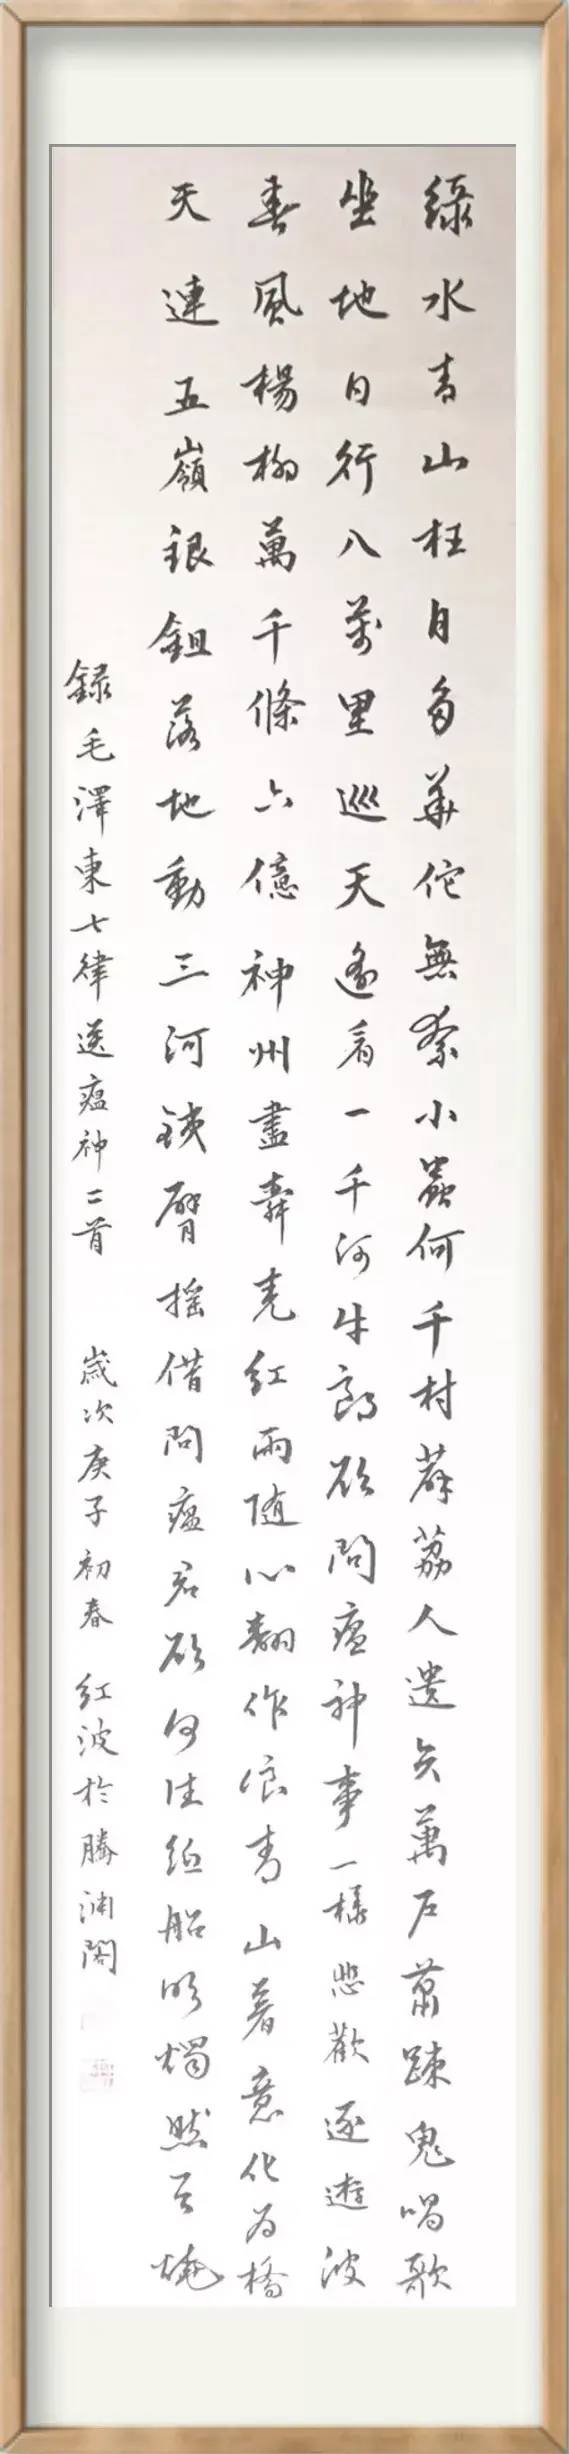 綠水青山枉自多華佗無奈小蟲何千村薜荔人遺矢萬戶蕭疎鬼唱歌
坐地日行八萬里巡天遙看一千河牛郎欲問瘟神事一樣悲歡逐逝波
春風楊柳萬千條六億神州盡舜堯紅雨隨心翻作浪青山著意化為橋
天連五嶺銀鉏落地動三河鐵臂搖借問瘟君欲何往紙船明燭照天燒
錄毛澤東七律送瘟神二首 歲次庚子初春 紅波於騰淵閣